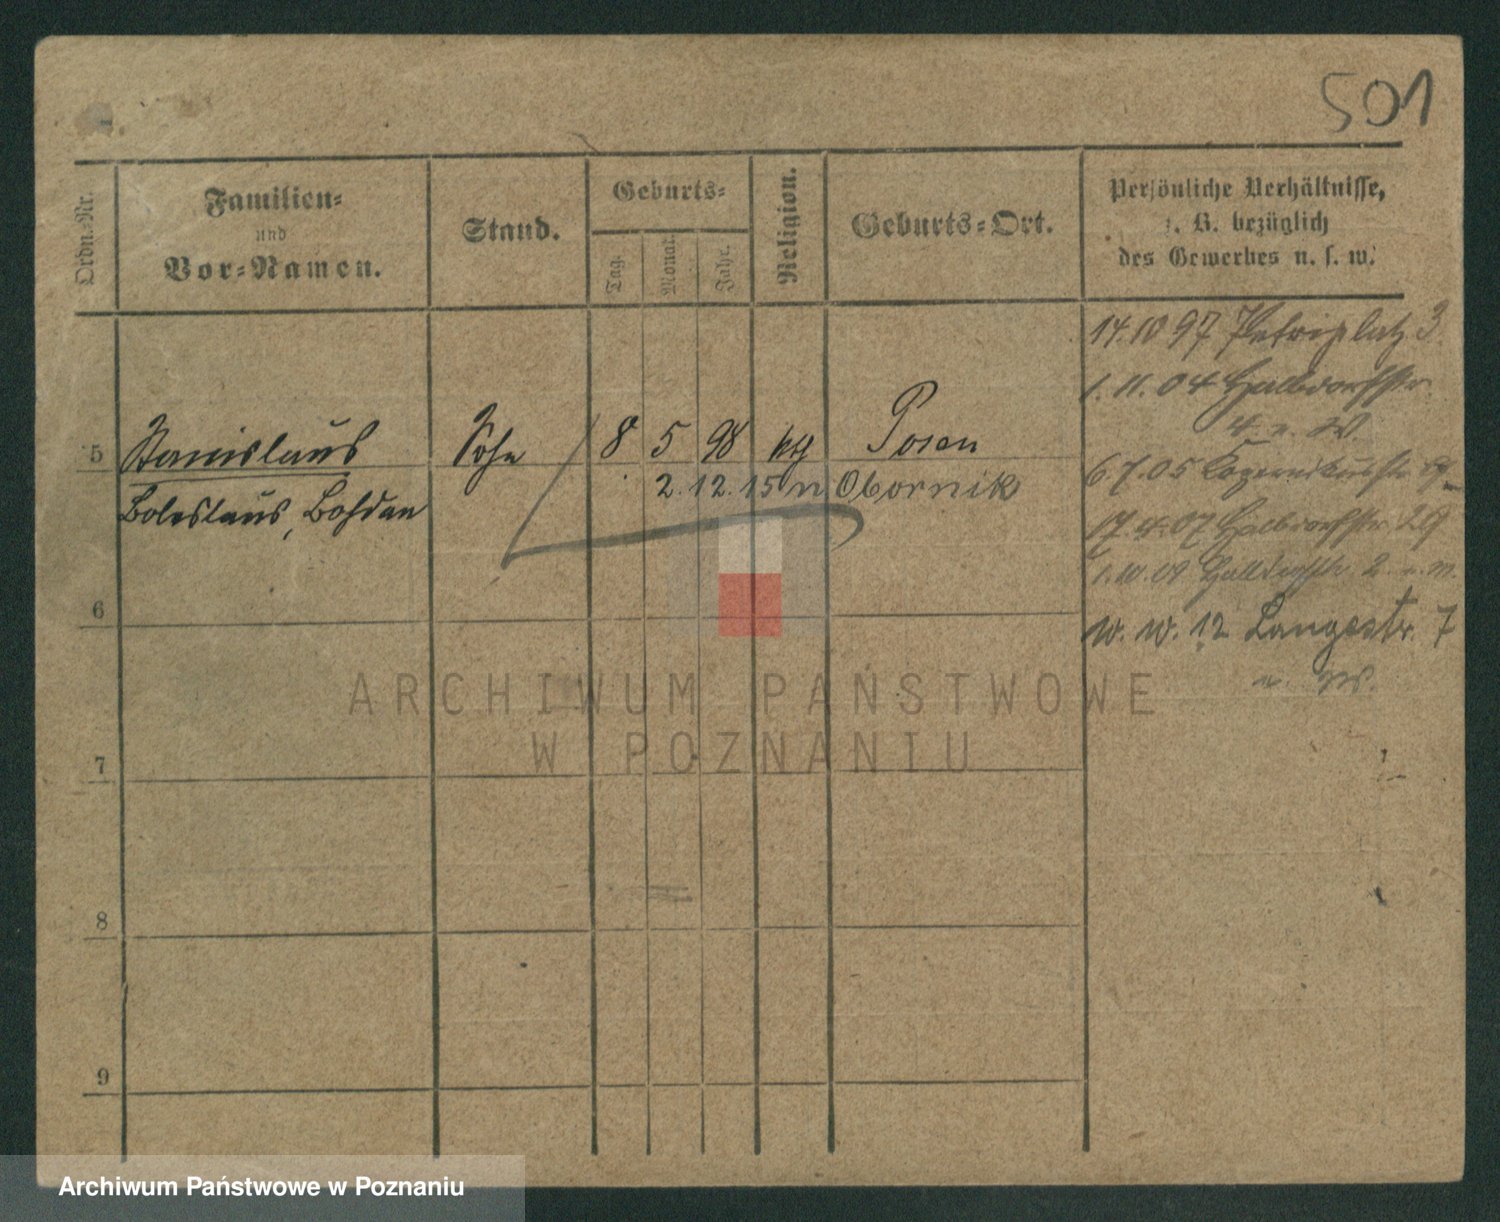 501
Ordn.-Nr.
Familien-
und
Vor-Namen.
Stand.
Geburts-
Tag.
Monat.
Jahr.
Religion.
Geburts-Ort.
Persönliche Verhältnisse,
z. B. bezüglich
des Gewerbes u. s. w.
14.10 97 Petriplatz 3
1. 11. 04 Halbdorfstr.
5 Stanislaus Sohn 8 5 98 kth Posen
Boleslaus, Bohdan
2. 12. 15 n Obornik
6. 7. 05 Kopernikusstr.
17. 4. 07 Halbdorfstr 29
1. 10. 09 Halbdorfstr 2
12 Langestr. 7
6
7
8
9
ARCHIWUM PAŃSTWOWE
W POZNANIU
Archiwum Państwowe w Poznaniu